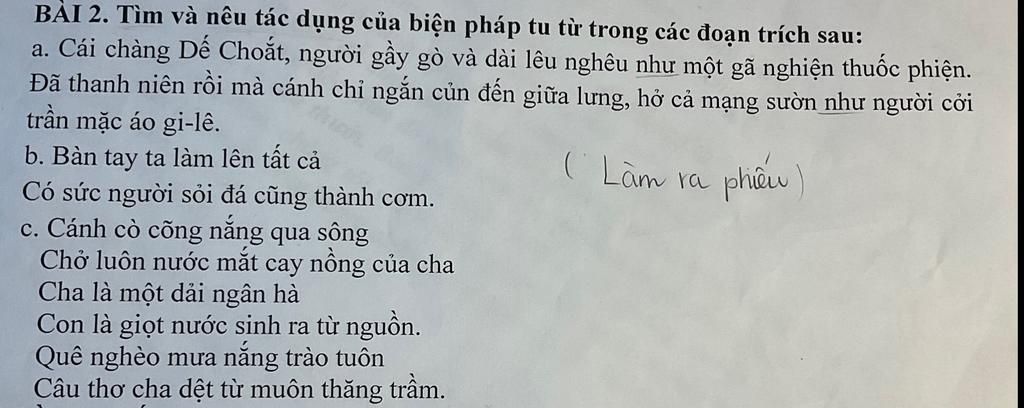 BÀI 2. Tìm và nêu tác dụng của biện pháp tu từ trong các đoạn trích sau:
a. Cái chàng Dế Choắt, người gầy gò và dài lêu nghêu như một gã nghiện thuốc phiện.
Đã thanh niên rồi mà cánh chỉ ngắn củn đến giữa lưng, hở cả mạng sườn như người cởi
trần mặc áo gi-lê.
b. Bàn tay ta làm lên tất cả
( Làm ra phiếu)
Có sức người sỏi đá cũng thành cơm.
c. Cánh cò cõng nắng qua sông
Chở luôn nước mắt cay nồng của cha
Cha là một dải ngân hà
Con là giọt nước sinh ra từ nguồn.
Quê nghèo mưa nắng trào tuôn
Câu thơ cha dệt từ muôn thăng trầm.